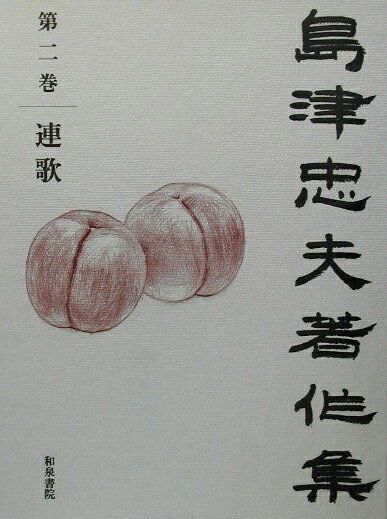 島津忠夫著作集
第二巻
連歌
和泉書院